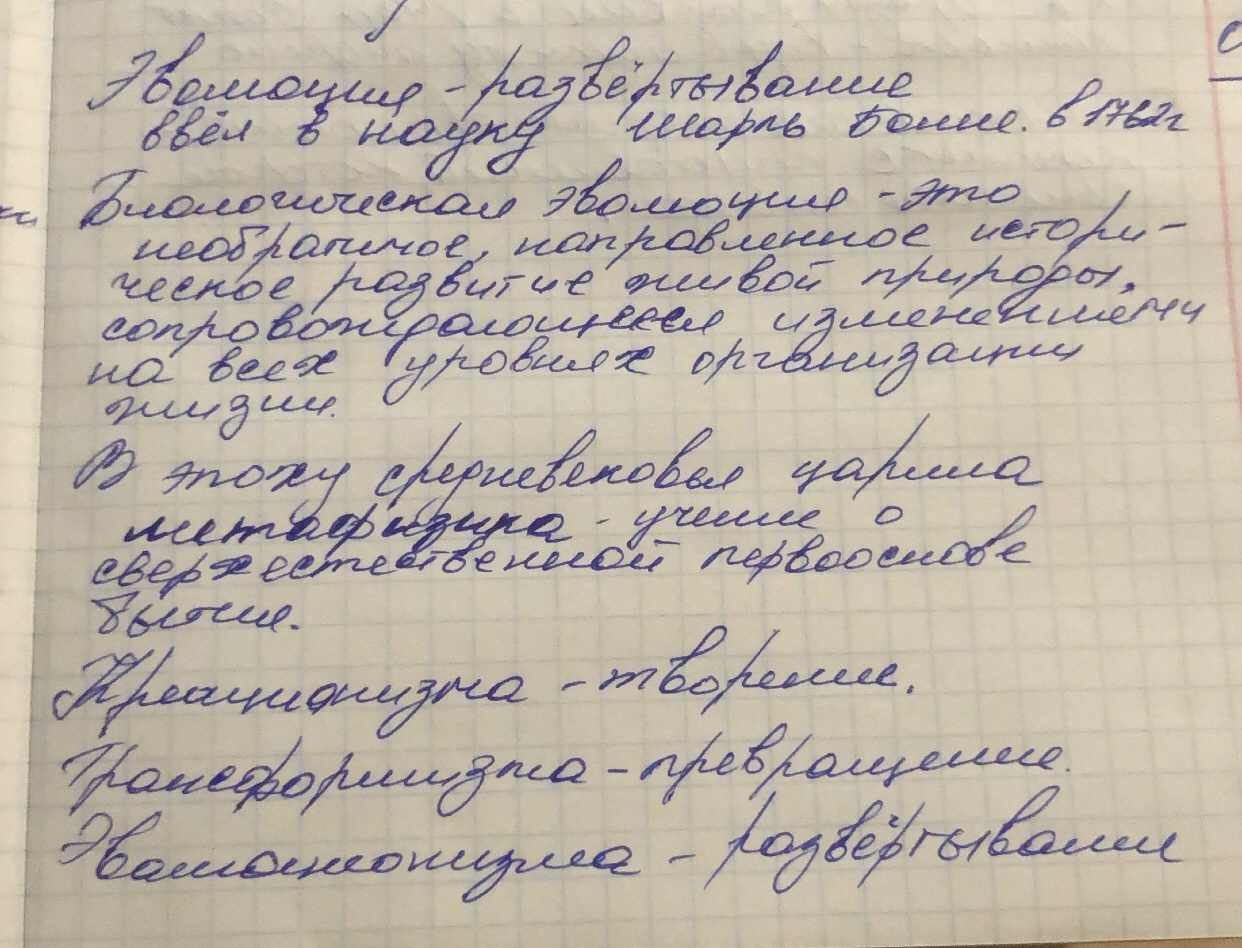 Эволюция - развёртывание
ввёл в науку Шарль Бонне. в 1762г
Биологическая эволюция - это
необратимое, направленное истори-
ческое развитие живой природы,
сопровождающееся изменениями
на всех уровнях организации
жизни.
В эпоху средневековья царила
метафизика - учение о
сверхестественной первооснове
бытия.
Креационизма - творение.
Трансформизма - превращение.
Эволюционизма - развёртывание